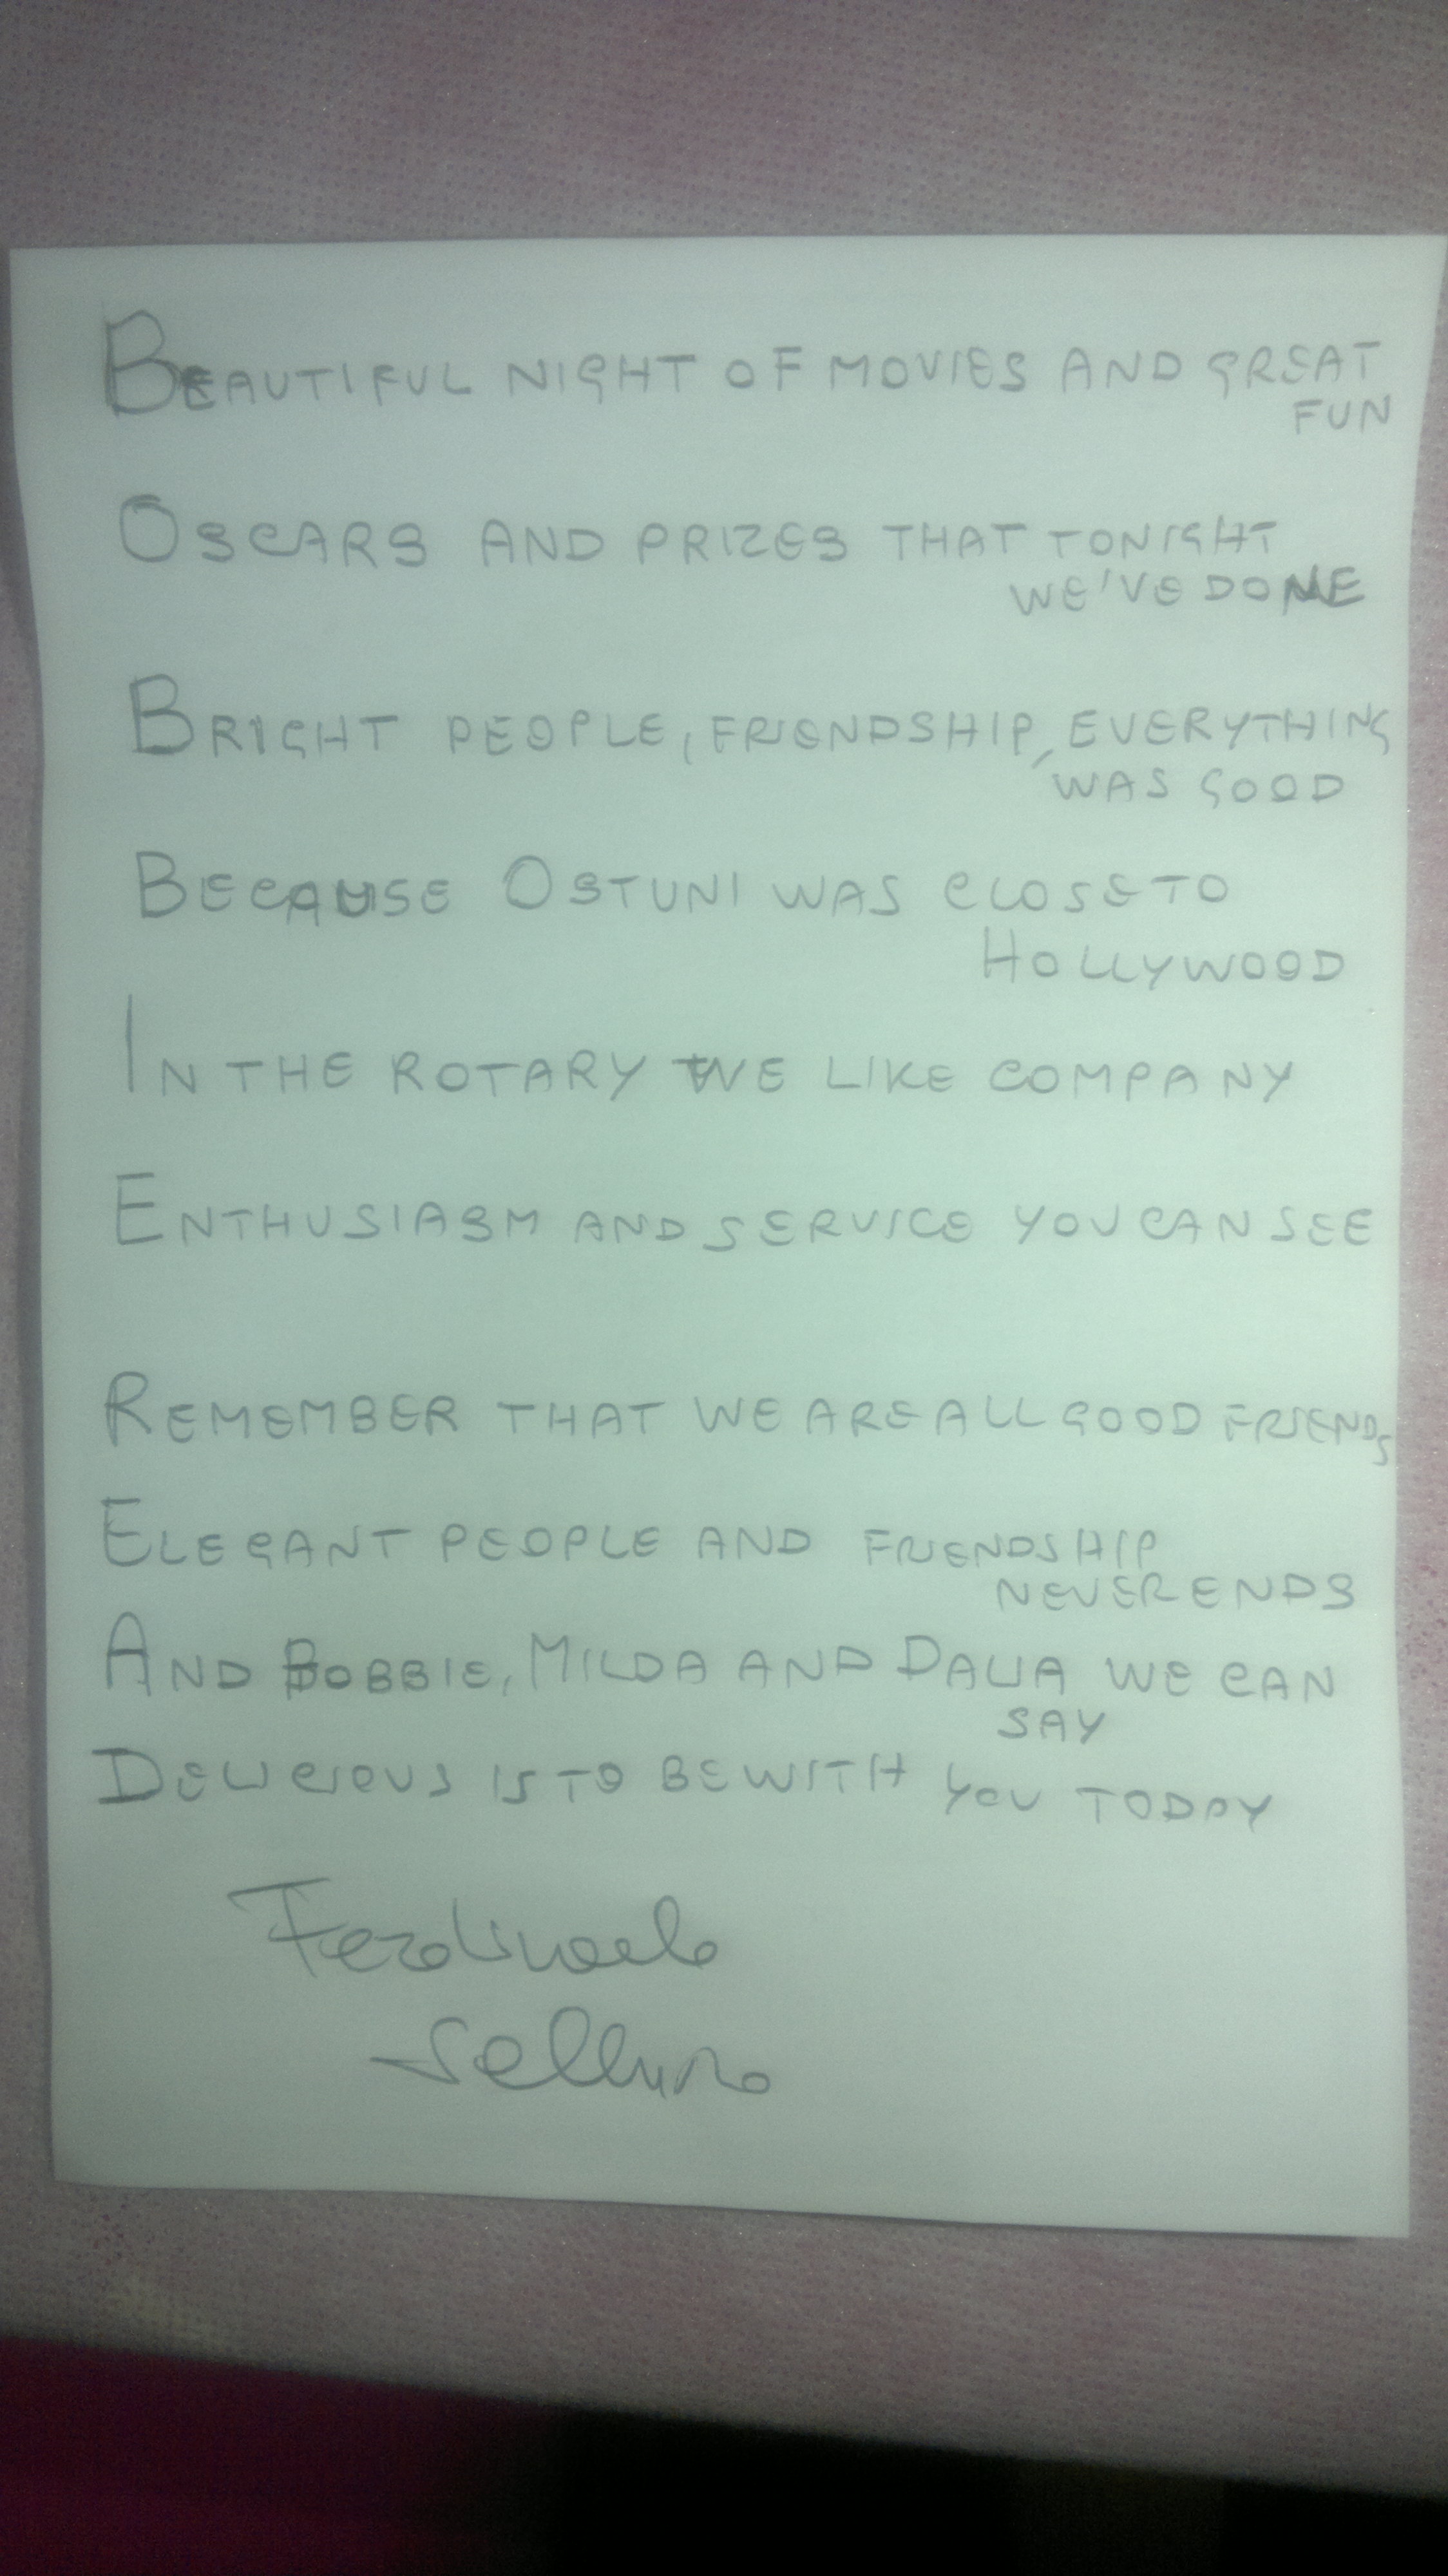 BEAUTIFUL NIGHT OF MOVIES AND GREAT
FUN
OSCARS AND PRIZES THAT TONIGHT
WE'VE DONE
BRIGHT PEOPLE, FRIENDSHIP, EVERYTHING
WAS GOOD
BECAUSE OSTUNI WAS CLOSE TO
HOLLYWOOD
IN THE ROTARY WE LIKE COMPANY
ENTHUSIASM AND SERVICE YOU CAN SEE
REMEMBER THAT WE ARE ALL GOOD FRIENDS
ELEGANT PEOPLE AND FRIENDSHIP
NEVER ENDS
AND BOBBIE, MILDA AND DALIA WE CAN
SAY
DELICIOUS IS TO BE WITH YOU TODAY
Ferdinando